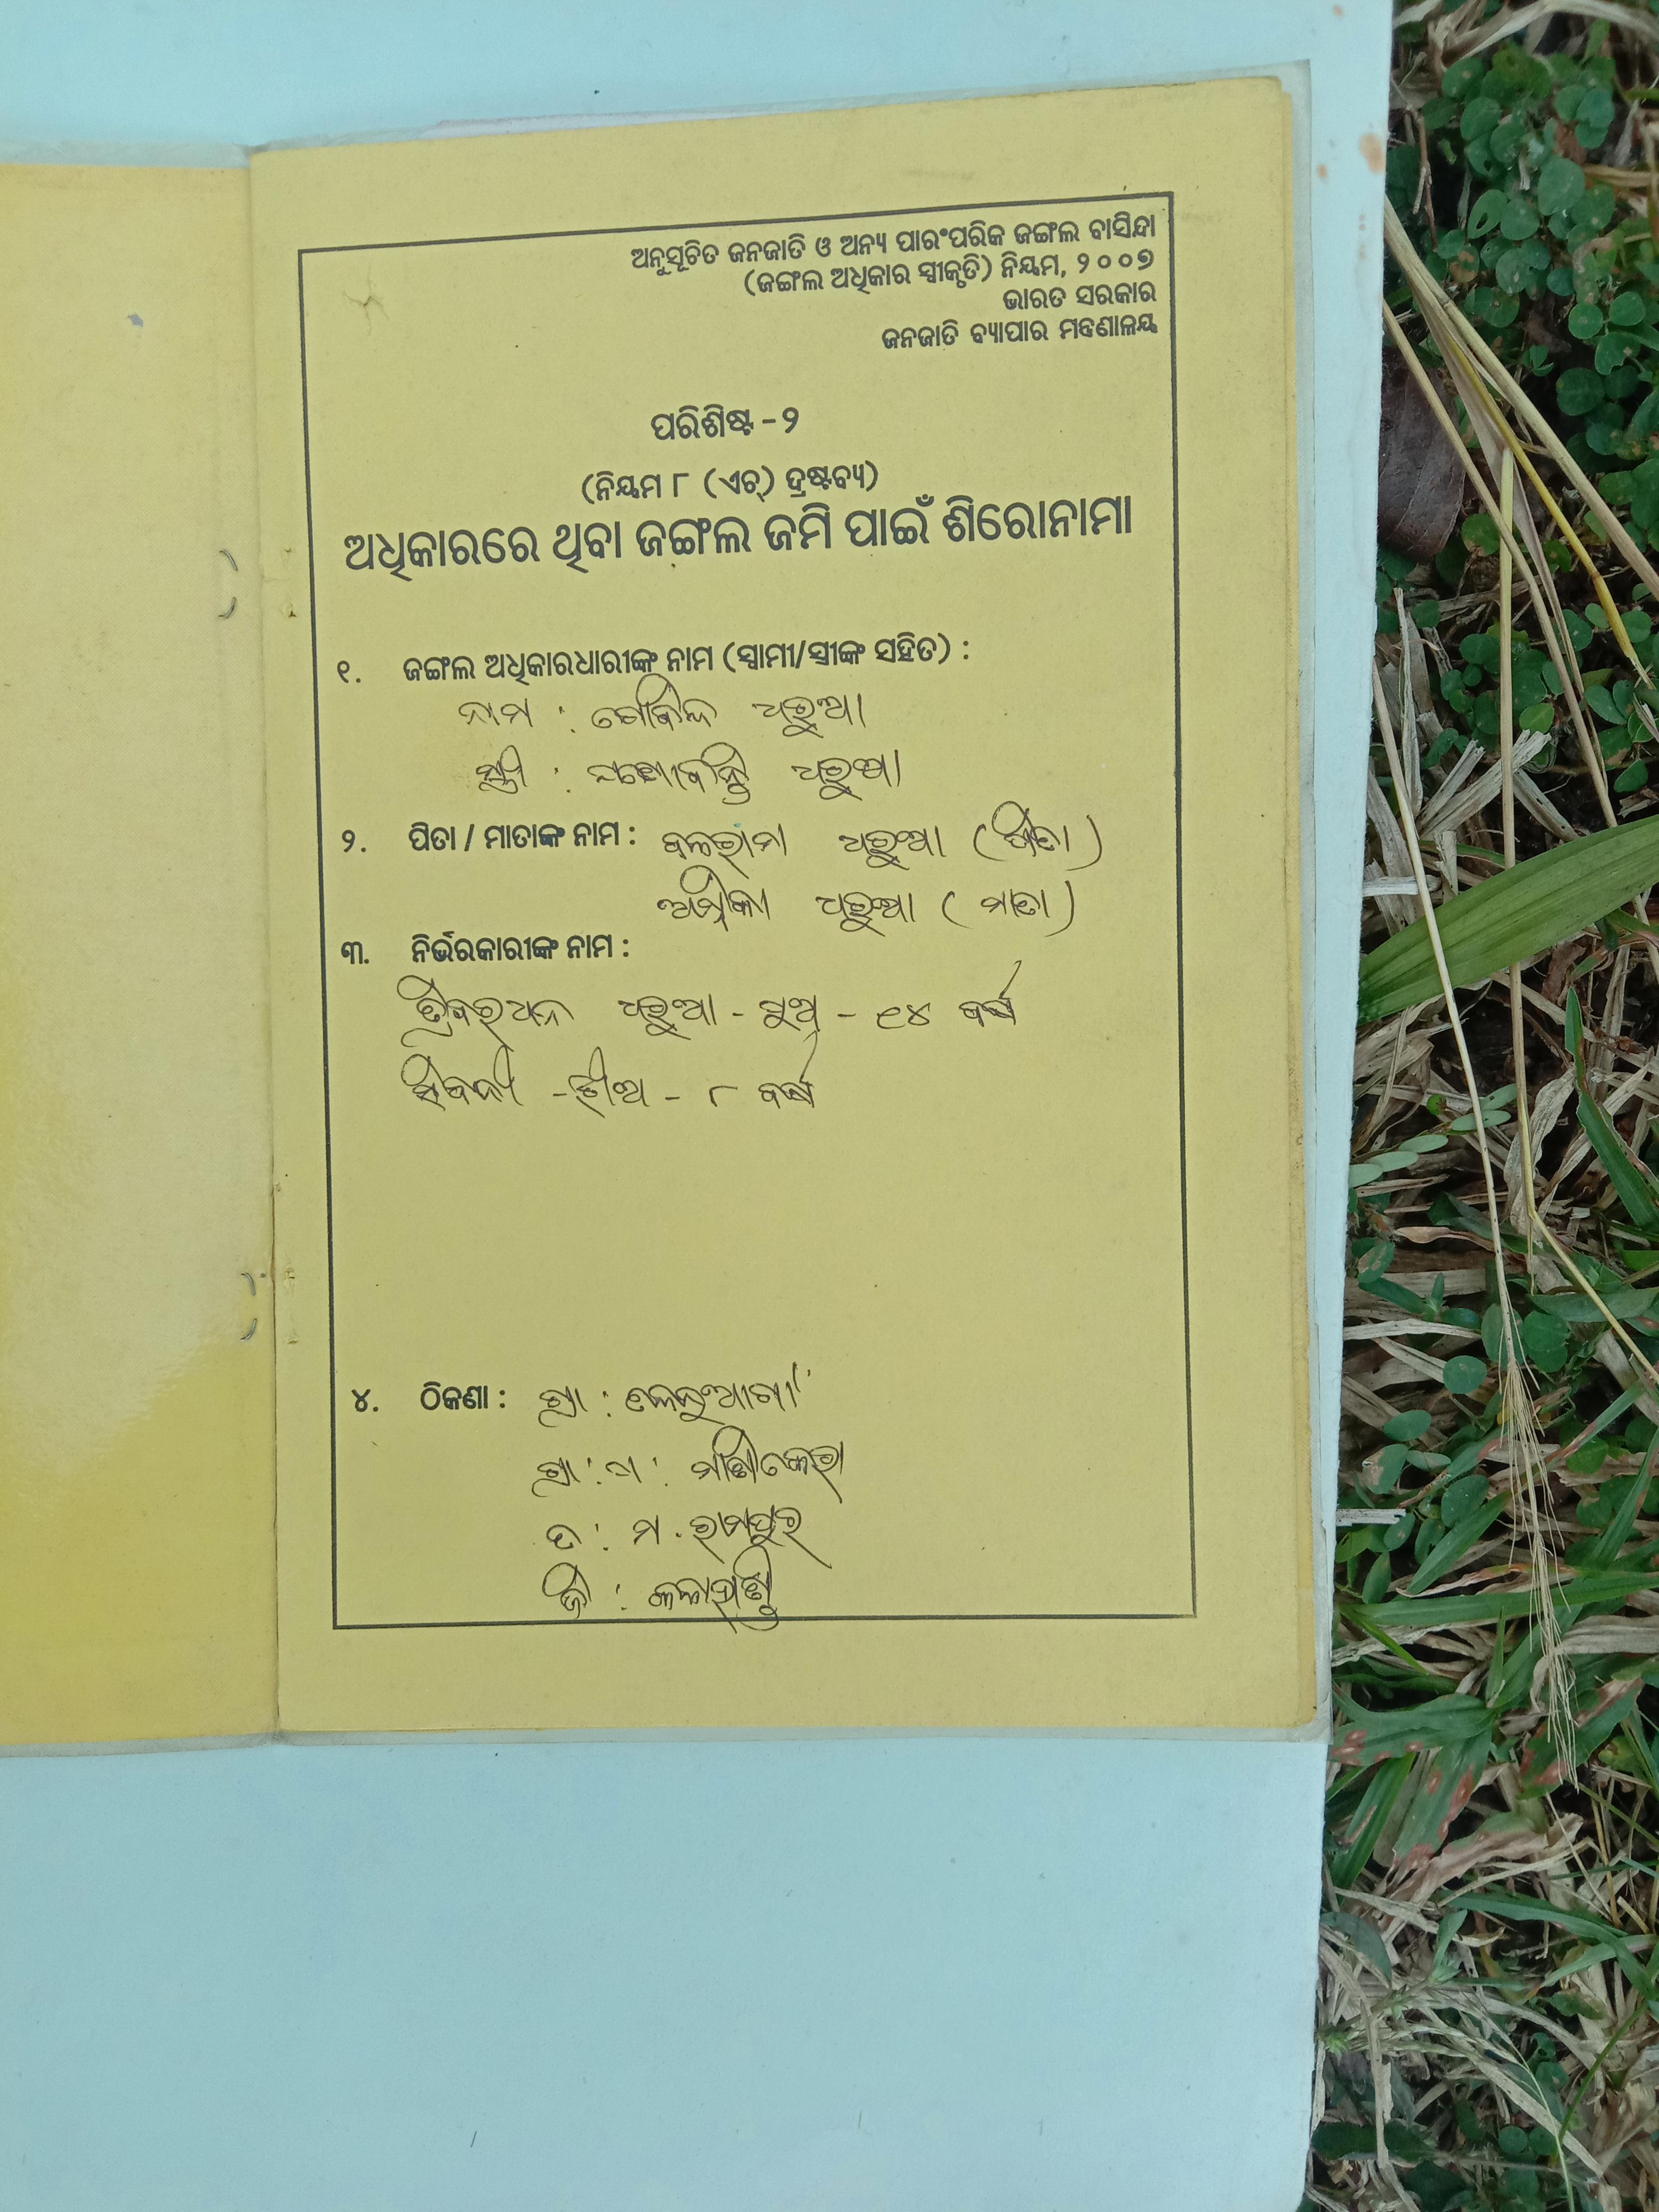 ଅନୁସୂଚିତ ଜନଜାତି ଓ ଅନ୍ୟ ପାରଂପରିକ ଜଙ୍ଗଲ ବାସିନ୍ଦା
(ଜଙ୍ଗଲ ଅଧିକାର ସ୍ୱୀକୃତି) ନିୟମ, ୨୦୦୭
ଭାରତ ସରକାର
ଜନଜାତି ବ୍ୟାପାର ମନ୍ତ୍ରଣାଳୟ
ପରିଶିଷ୍ଟ - ୨
(ନିୟମ ୮ (ଏଚ୍) ଦ୍ରଷ୍ଟବ୍ୟ)
ଅଧିକାରରେ ଥିବା ଜଙ୍ଗଲ ଜମି ପାଇଁ ଶିରୋନାମା
୧. ଜଙ୍ଗଲ ଅଧିକାରଧାରୀଙ୍କ ନାମ (ସ୍ୱାମୀ/ସ୍ତ୍ରୀଙ୍କ ସହିତ) :
ନାମ : ଗୋବିନ୍ଦ ଧରୁଆ
ସ୍ତ୍ରୀ : ଧରୁଆ
୨. ପିତା / ମାତାଙ୍କ ନାମ : ବଳରାମ ଧରୁଆ (ପିତା)
ଅମ୍ବିକା ଧରୁଆ (ମାତା)
୩. ନିର୍ଭରକାରୀଙ୍କ ନାମ :
ଧରୁଆ - ପୁଅ - ୧୪ ବର୍ଷ
- ଝିଅ - ୮ ବର୍ଷ
୪. ଠିକଣା : ଗ୍ରା :
ଗ୍ରା : ପ :
ତ : ମ. ରାମପୁର
ଜି : କଳାହାଣ୍ଡି